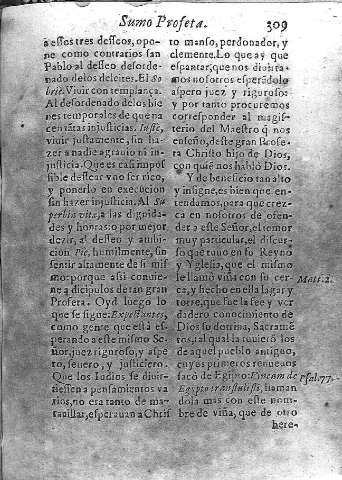 Sumo Profeta. 309
a essos tres desseos, opo-
ne como contrarios san
Pablo al desseo desorde-
nado de los deleites. El So
briè. Vivir con templança.
Al desordenado de los bie
nes temporales de que na
cen tãtas injusticias. Iustè,
vivir justamente, sin ha-
zer a nadie agravio ni in-
justicia. Que es casi impos
sible dessear vno ser rico,
y ponerlo en execucion
sin hazer injusticia. Al Su
perbia vitæ, a las dignida-
des y honras o por mejor
dezir, al desseo y ambi-
cion Piè, humilmente, sin
sentir altamente de si mis
mo: porque assi convie-
ne a dicipulos de tan gran
Profeta. Oyd luego lo
que se sigue: Expectantes,
como gente que està es-
perando a este mismo Se-
ñor, juez rigoroso, y aspe
ro, severo, y justiciero.
Que los Iudios se divir-
tiessen a pensamientos va
rios, no era tanto de ma-
ravillar, esperauan a Chris
to manso, perdonador, y
clemente. Lo que ay que
espantar, que nos divirta-
mos nosotros esperãdolo
aspero juez y riguroso:
y por tanto procuremos
corresponder al magis-
terio del Maestro q̃ nos
enseño, deste gran Profe-
ta Christo hijo de Dios,
con quiẽ nos habló Dios.
Y de beneficio tan alto
y insigne, es bien que en-
tendamos, para que crez-
ca en nosotros de ofen-
der a este Señor, el temor
muy particular, el discur-
so que tuvo en su Reyno
y Yglesia, que el mismo
le llamò viña cõ su cer-
ca, y hecho en ella lagar y
torre, que fue la fee y ver
dadero conocimiento de
Dios su dotrina, Sacramẽ
tos, tal qual la tuvierõ los
de aquel pueblo antiguo,
cuyos primeros renueuos
sacó de Egipto: Vineam de
Egypto transtulisti, llaman
dola mas con este nom-
bre de viña, que de otro
here-
Matt. 2.
Psal. 77.